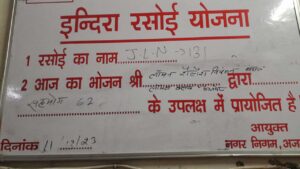 इन्दिरा रसोई योजना
1 रसोई का नाम J.L.N - 131
2 आज का भोजन श्री द्वारा
62 के उपलक्ष में प्रायोजित है
आयुक्त
दिनांक 11/12/23 नगर निगम, अज